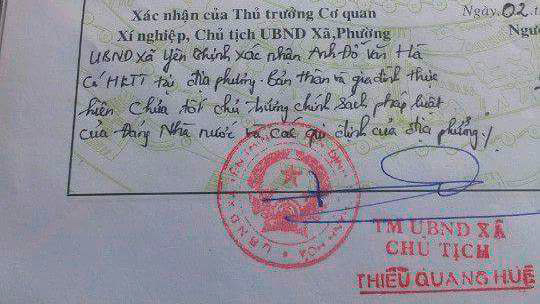 Xác nhận của Thủ trưởng Cơ quan
Xí nghiệp, Chủ tịch UBND Xã,Phường
Ngày 02.
Ngườ
UBND xã Yên Thịnh xác nhận Anh Đỗ Văn Hà
Có HKTT tại địa phương. Bản thân và gia đình thực
hiện Chưa tốt chủ trương chính sách pháp luật
của Đảng Nhà nước và các qui định của địa phương./.
TM UBND XÃ
CHỦ TỊCH
THIỀU QUANG HUỆ